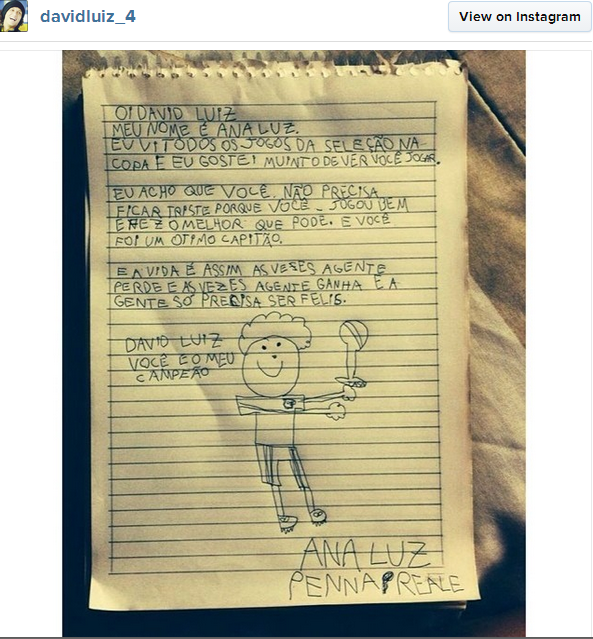 davidluiz_4
View on Instagram
OI DAVID LUIZ
MEU NOME É ANA LUZ.
EU VI TODOS OS JOGOS DA SELEÇÃO NA
COPA E EU GOSTEI MUINTO DE VER VOCÊ JOGAR.
EU ACHO QUE VOCÊ NÃO PRECISA
FICAR TRISTE PORQUE VOCÊ JOGOU BEM
E FEZ O MELHOR QUE PODE. E VOCÊ
FOI UM OTIMO CAPITÃO.
E A VIDA É ASSIM AS VESES AGENTE
PERDE E AS VEZES AGENTE GANHA E A
GENTE SÓ PRECISA SER FELIS.
DAVID LUIZ
VOCÊ E O MEU
CAMPEÃO
ANA LUZ
PENNA REALE